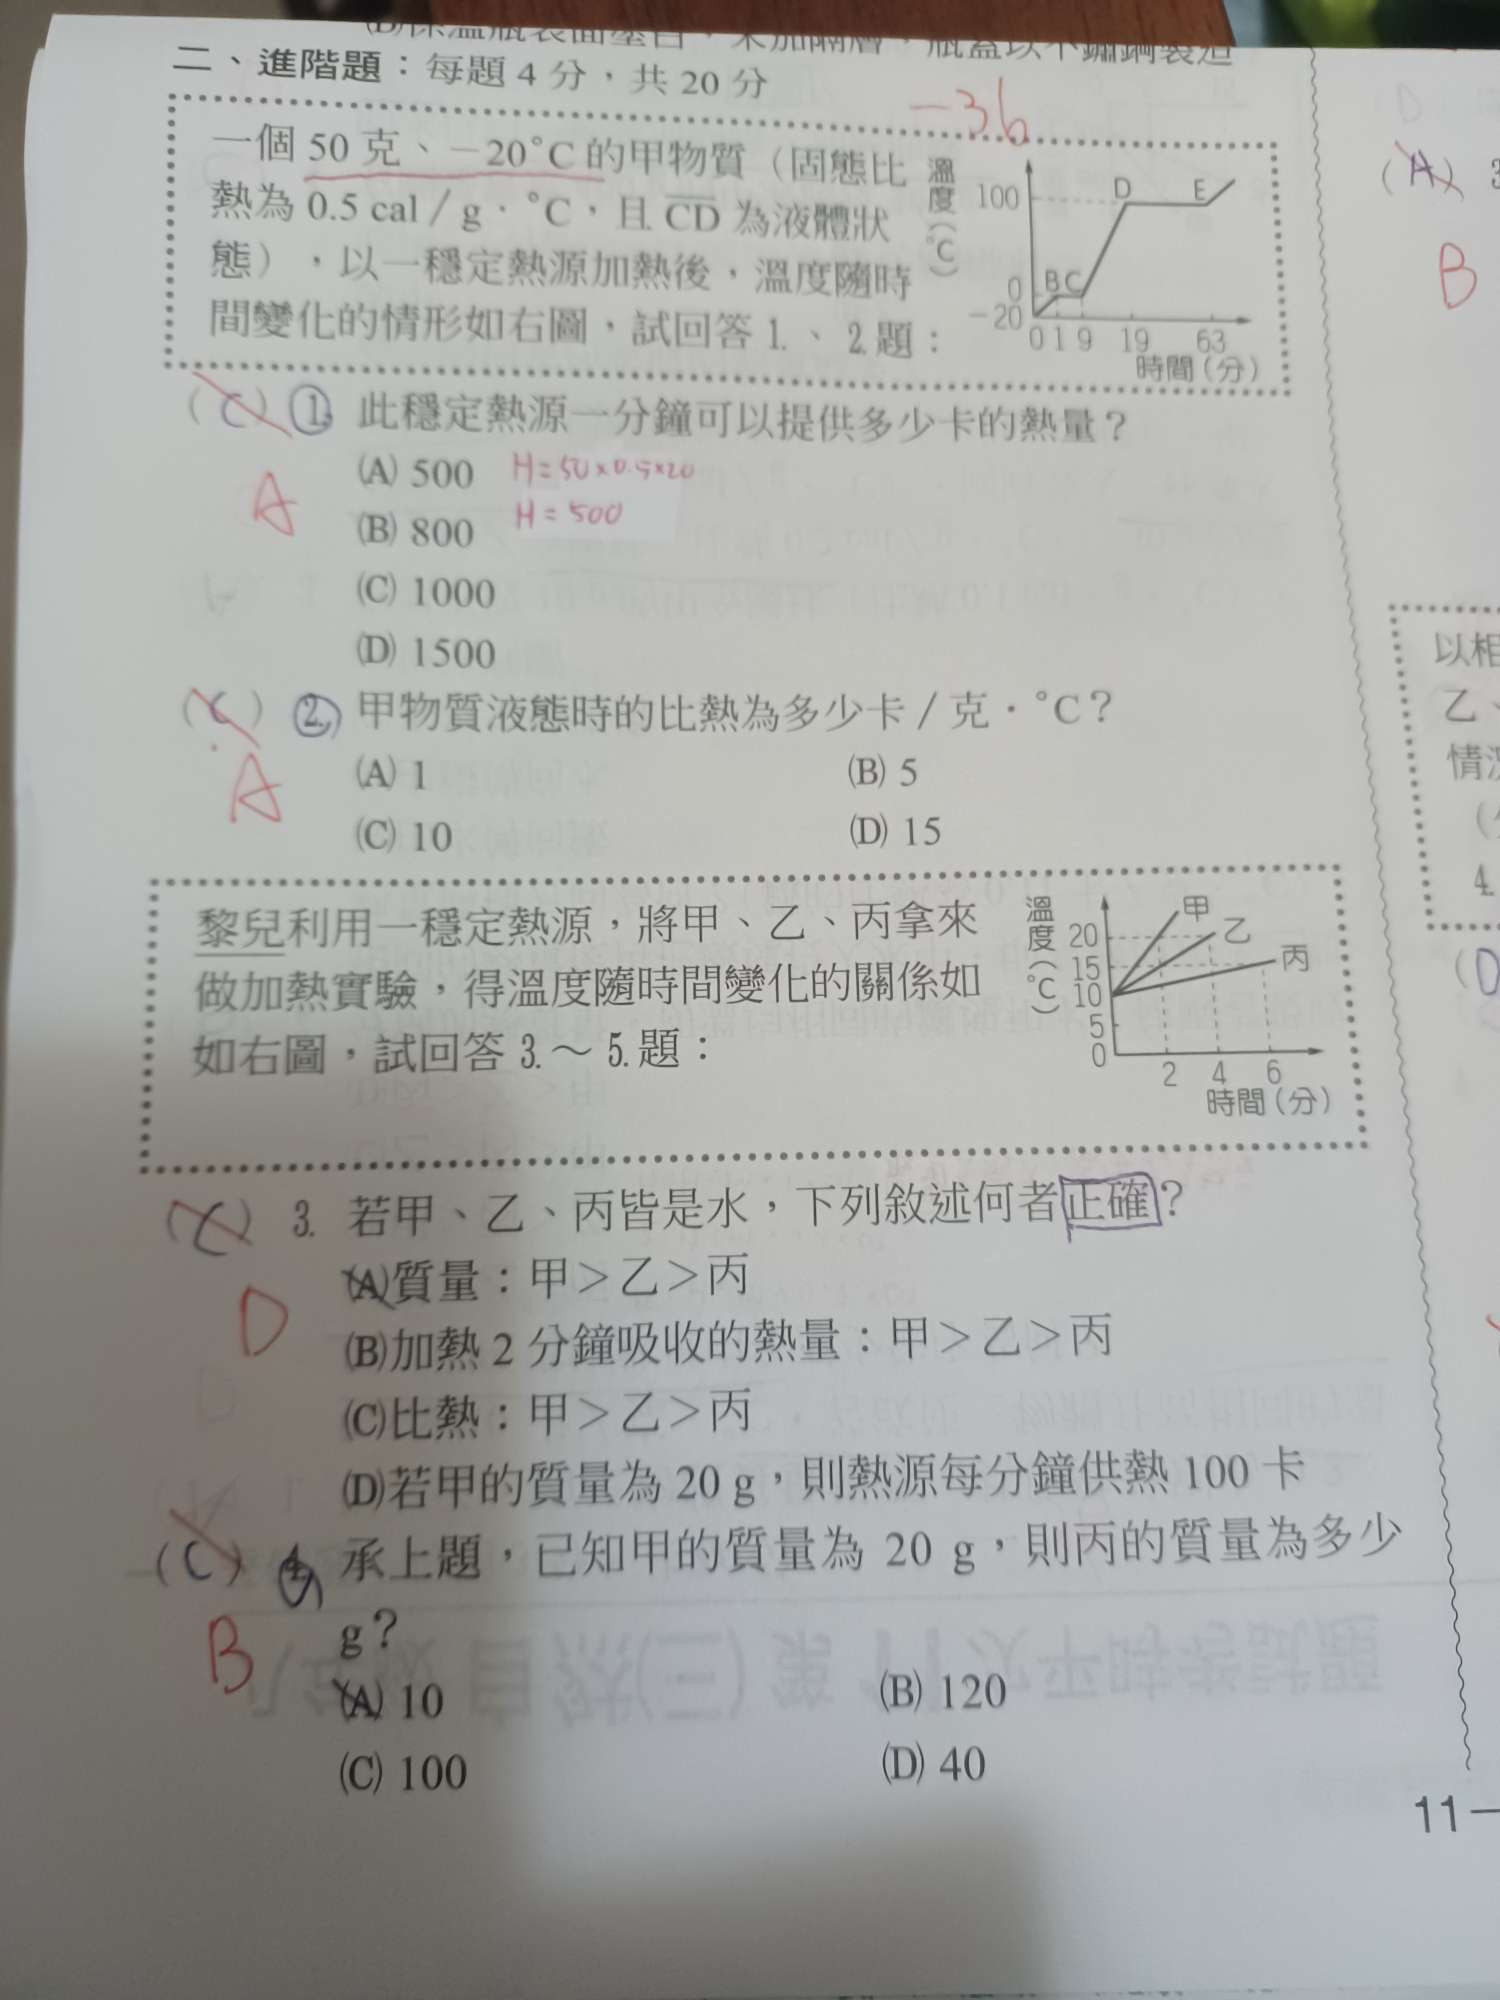 二、進階題：每題 4 分，共 20 分
-36
一個 50 克、－20°C 的甲物質（固態比
熱為 0.5 cal／g．°C，且 CD 為液體狀
態），以一穩定熱源加熱後，溫度隨時
間變化的情形如右圖，試回答 1.、2.題：
溫度(°C)
100
0
－20
B C D E
0 1 9 19 63
時間(分)
(C) 1. 此穩定熱源一分鐘可以提供多少卡的熱量？
A
(A) 500
H=50×0.5×20
H=500
(B) 800
(C) 1000
(D) 1500
(C) 2. 甲物質液態時的比熱為多少卡／克．°C？
A
(A) 1
(B) 5
(C) 10
(D) 15
黎兒利用一穩定熱源，將甲、乙、丙拿來
做加熱實驗，得溫度隨時間變化的關係如
如右圖，試回答 3.～5.題：
溫度(°C)
20
15
10
5
0
甲
乙
丙
2 4 6
時間(分)
(C) 3. 若甲、乙、丙皆是水，下列敘述何者正確？
D
(A)質量：甲＞乙＞丙
(B)加熱 2 分鐘吸收的熱量：甲＞乙＞丙
(C)比熱：甲＞乙＞丙
(D)若甲的質量為 20 g，則熱源每分鐘供熱 100 卡
(C) 4. 承上題，已知甲的質量為 20 g，則丙的質量為多少
g？
B
(A) 10
(B) 120
(C) 100
(D) 40
(A) 3
B
以相
乙、
情況
4.
(D
11－